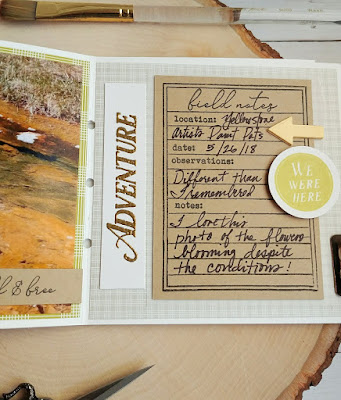 & free
ADVENTURE
field notes
location: Yellowstone
Artists Paint Pots
date: 5/26/18
observations:
Different than
I remembered
notes:
I love this
photo of the flowers
blooming despite
the conditions!
WE
WERE
HERE